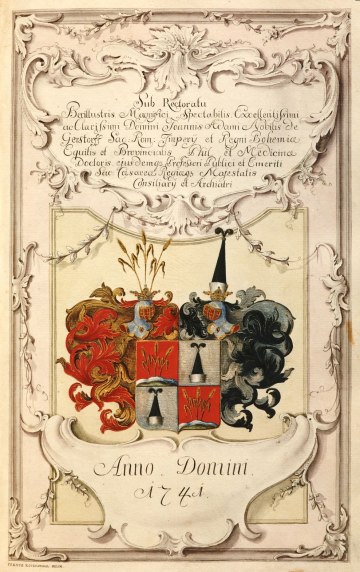 Sub Rectoratu
Perillustris Magnifici Spectabilis Excellentissimi
ac Clarissimi Domini Joannis Adami Nobilis de
Gerstorff Sac Rom. Impery et Regni Bohemiæ
Equitis et Provincialis Phil et Medicinæ
Doctoris ejusdemqs Professori Publici et Emeriti
Sac Cæsareæ Regiaqs Majestatis
Consiliary et Archiatri
Anno Domini
1741